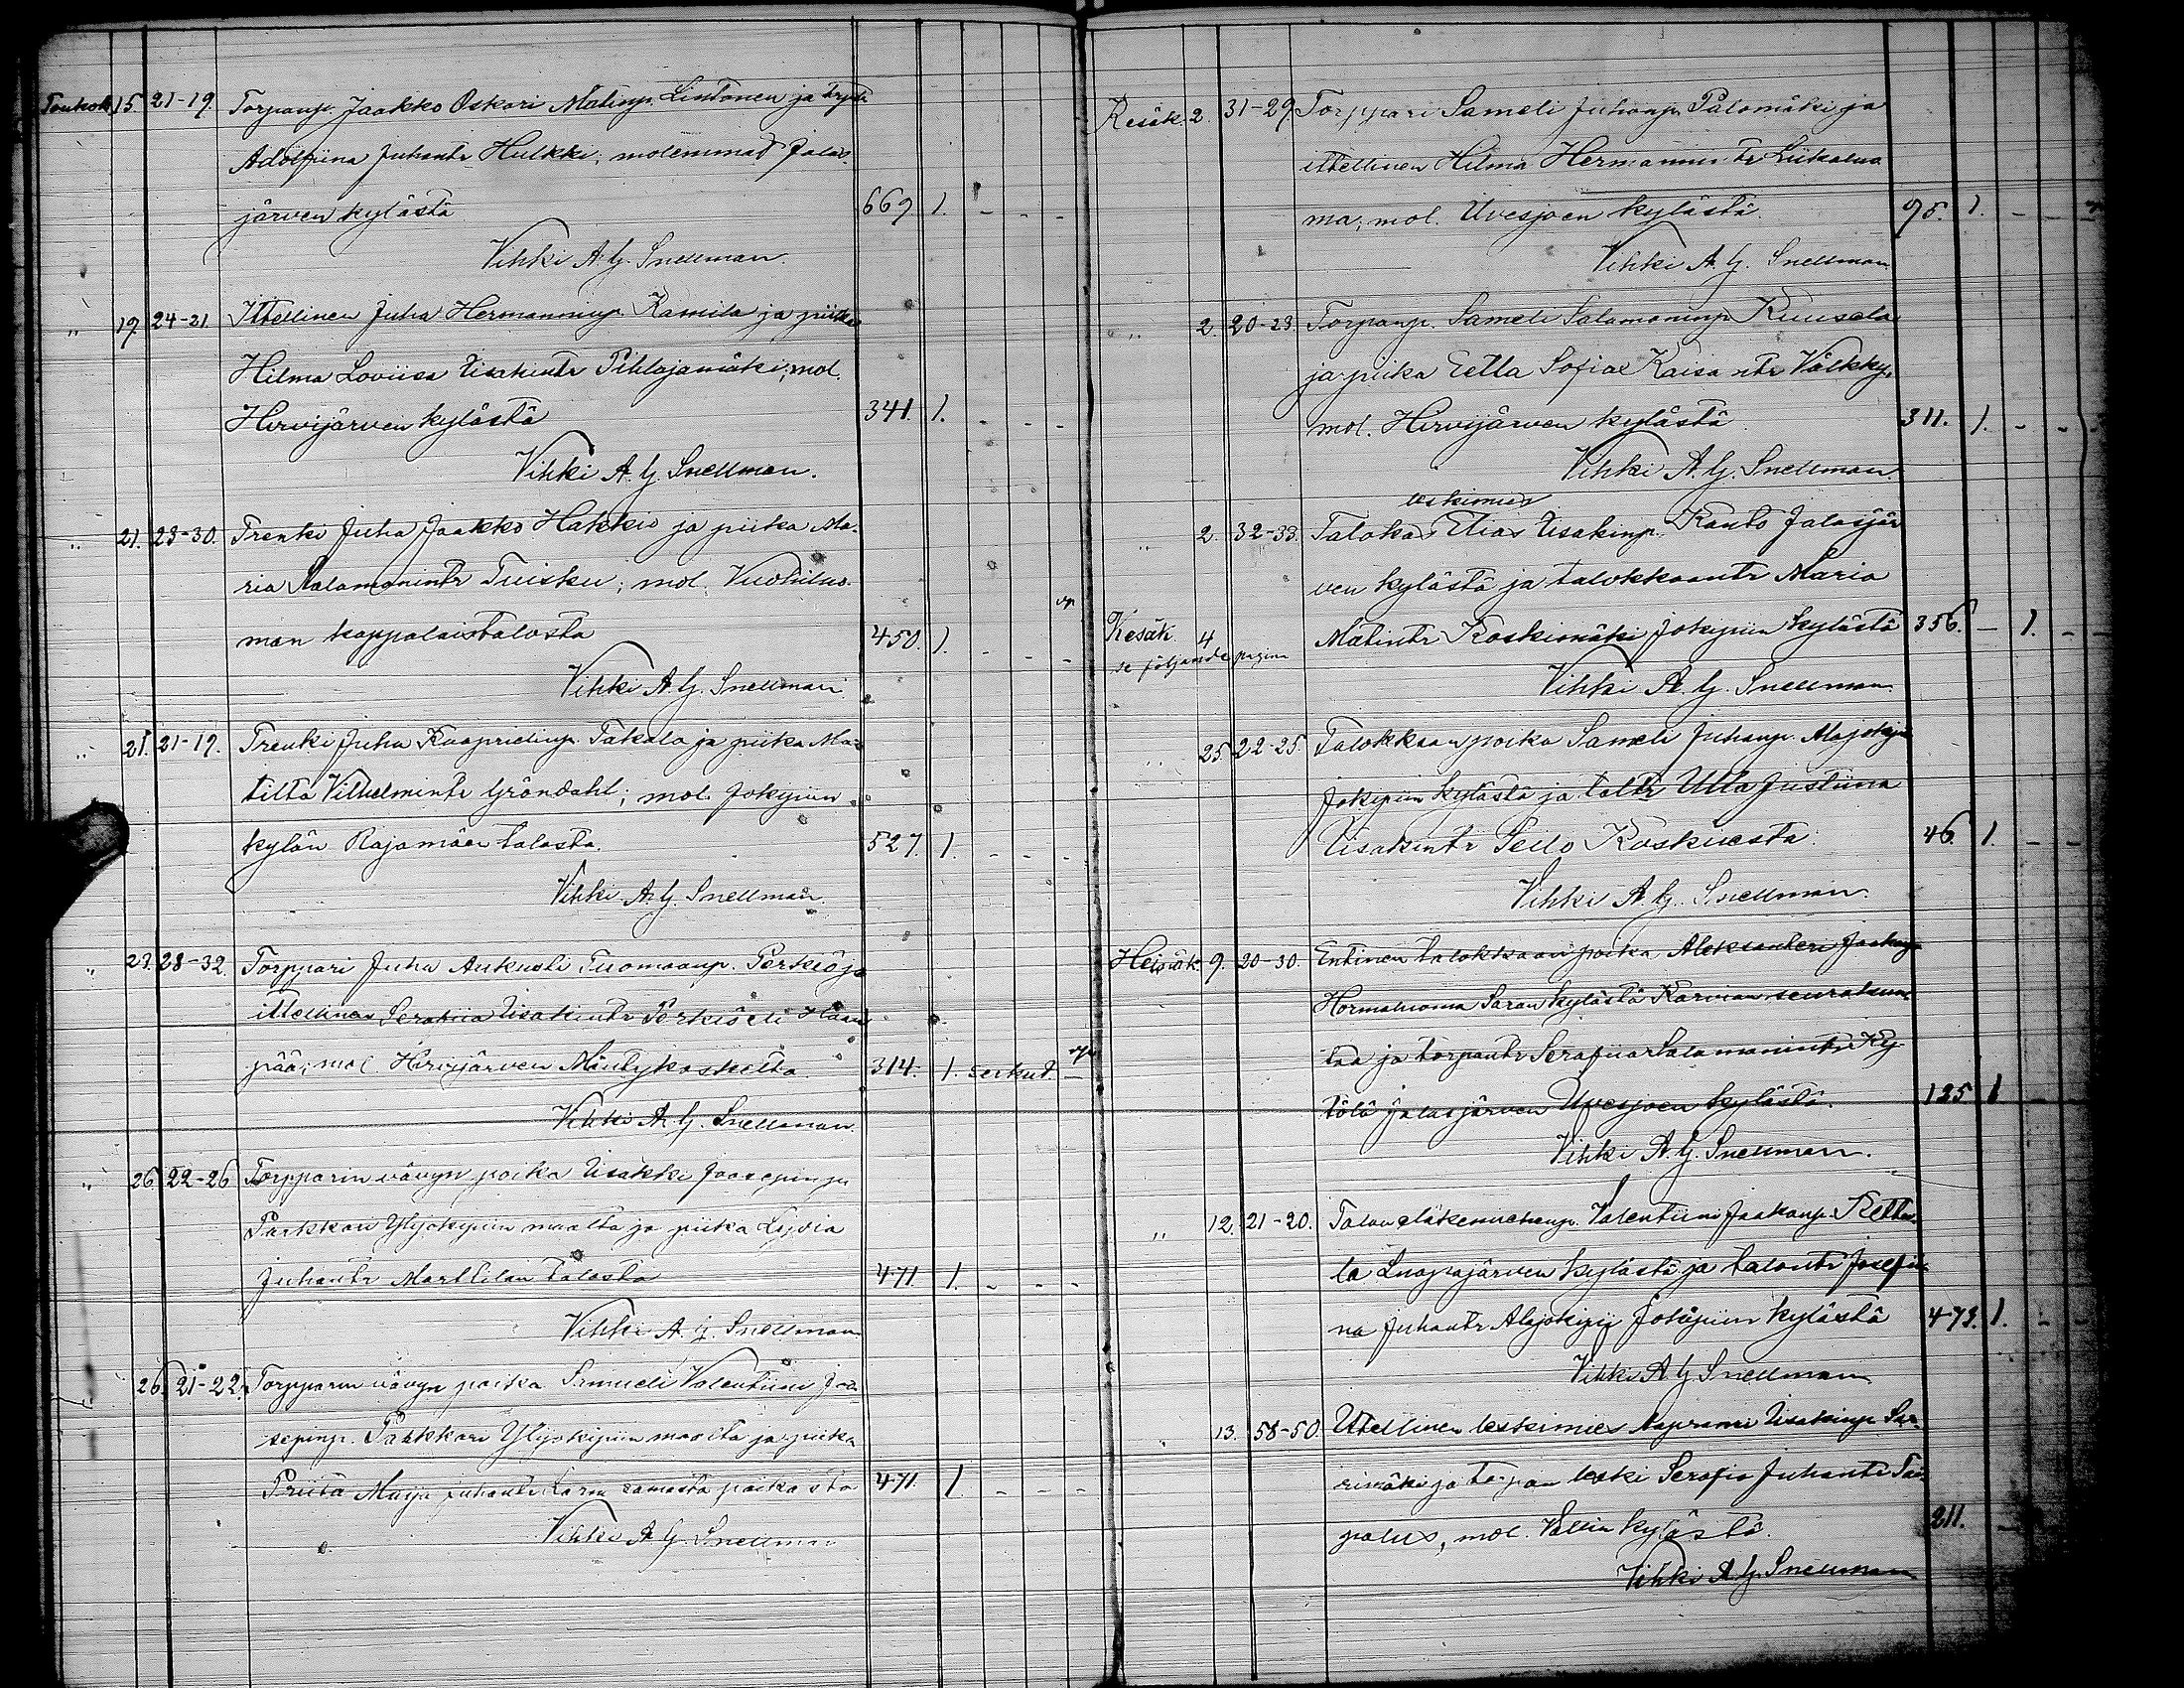 Toukok. 15. 21-19. Torpanp. Jaakko Oskari Matinp. Lintanen ja trptr
Adolfiina Juhantr Hulkki; molemmat Jalas-
järven kylästä 669 1. - - -
Vihki A. G. Snellman.
" 19. 24-21. Ittellinen Juha Hermanninp. Kamila ja piika
Hilma Loviisa Iisakintr Pihlajamäki; mol.
Hirvijärven kylästä 341. 1. - - -
Vihki A. G. Snellman.
" 21. 23-30. Trenki Juha Jaakko Hakkio ja piika Ma-
ria Salamonintr Tuisku; mol.
man kappalaistalosta 450. 1. - - -
Vihki A. G. Snellman
" 21. 21-19. Trenki Juha Kaaprielinp. Takala ja piika Ma-
tilta Vilhelmintr Gröndahl; mol. Jokipiin
kylän Rajamäen talosta. 527. 1. - - -
Vihki A. G. Snellman
" 23. 28-32. Torppari Juha Aukusti Tuomaanp. Perkiö ja
ittellinen Serahiia Iisakintr Perkiö eli Haan
pää; mol Hirvijärven Mäntykoskelta. 314. 1. serkut. -
Vihki A. G. Snellman
" 26. 22-26. Torpparin vävyn poika Iisakki Joosepinp
Parkkari Ylijokipiin maalta ja piika Lyvia
Juhantr Marttilan talosta 471. 1. - - -
Vihki A. G. Snellman
" 26. 21-22. Torpparin vävyn poika Samueli Valentiini Joo-
sepinp. Parkkari Ylijokipiin maalta ja piika
Priita Maija Juhantr samasta paikasta 471. 1 - - -
Vihki A. G. Snellman
Kesäk. 2. 31-29. Torppari Sameli Juhanp. Palomäki ja
ittellinen Hilma Hermannintr Liikalua
ma; mol. Uvesjoen kylästä. 95. 1. - -
Vihki A. G. Snellman
" 2. 20-23. Torpanp. Sameli Salamoninp Kuusela
ja piika Eella Sofia Kaisantr Välkky,
mol. Hirvijärven kylästä. 311. 1. - - -
Vihki A. G. Snellman.
leskimies
" 2. 32-33. Talokas Elias Iisakinp. Kanto Jalasjär
ven kylästä ja talokkaantr Maria
Kesäk. 4 Matintr Koskimäki Jokipiin kylästä 356. - 1. - -
se följande pagina
Vihki A. G. Snellman.
" 25. 22-25. Talokkaan poika Sameli Juhanp. Alajokipii
Jokipiin kylästä ja taltr Ulla Justiina
Iisakintr Koskuesta. 46. 1. - -
Vihki A. G. Snellman.
Heinäk. 9. 20-30. Entinen talokkaan poika Aleksanteri Jaakonp
Hormaluoma Saran kylästä Karvian seurakun-
taa ja torpantr Serafiia Salamonintr Ky
tölä Jalasjärven Uvesjoen kylästä. 125 1
Vihki A. G. Snellman.
" 12. 21-20. Talon eläkemiehenp. Valentiini Jaakonp. Kettu-
la Luopajärven kylästä ja talontr Josefii-
na Juhantr Alajokipii Jokipiin kylästä 473. 1. - -
Vihki A G Snellman
" 13. 58-50. Ittellinen leskimies Aapraami Iisakinp
rimäki ja torpan leski Serafia Juhantr
palus, mol. Vallin kylästä. 211. -
Vihki A. G. Snellman